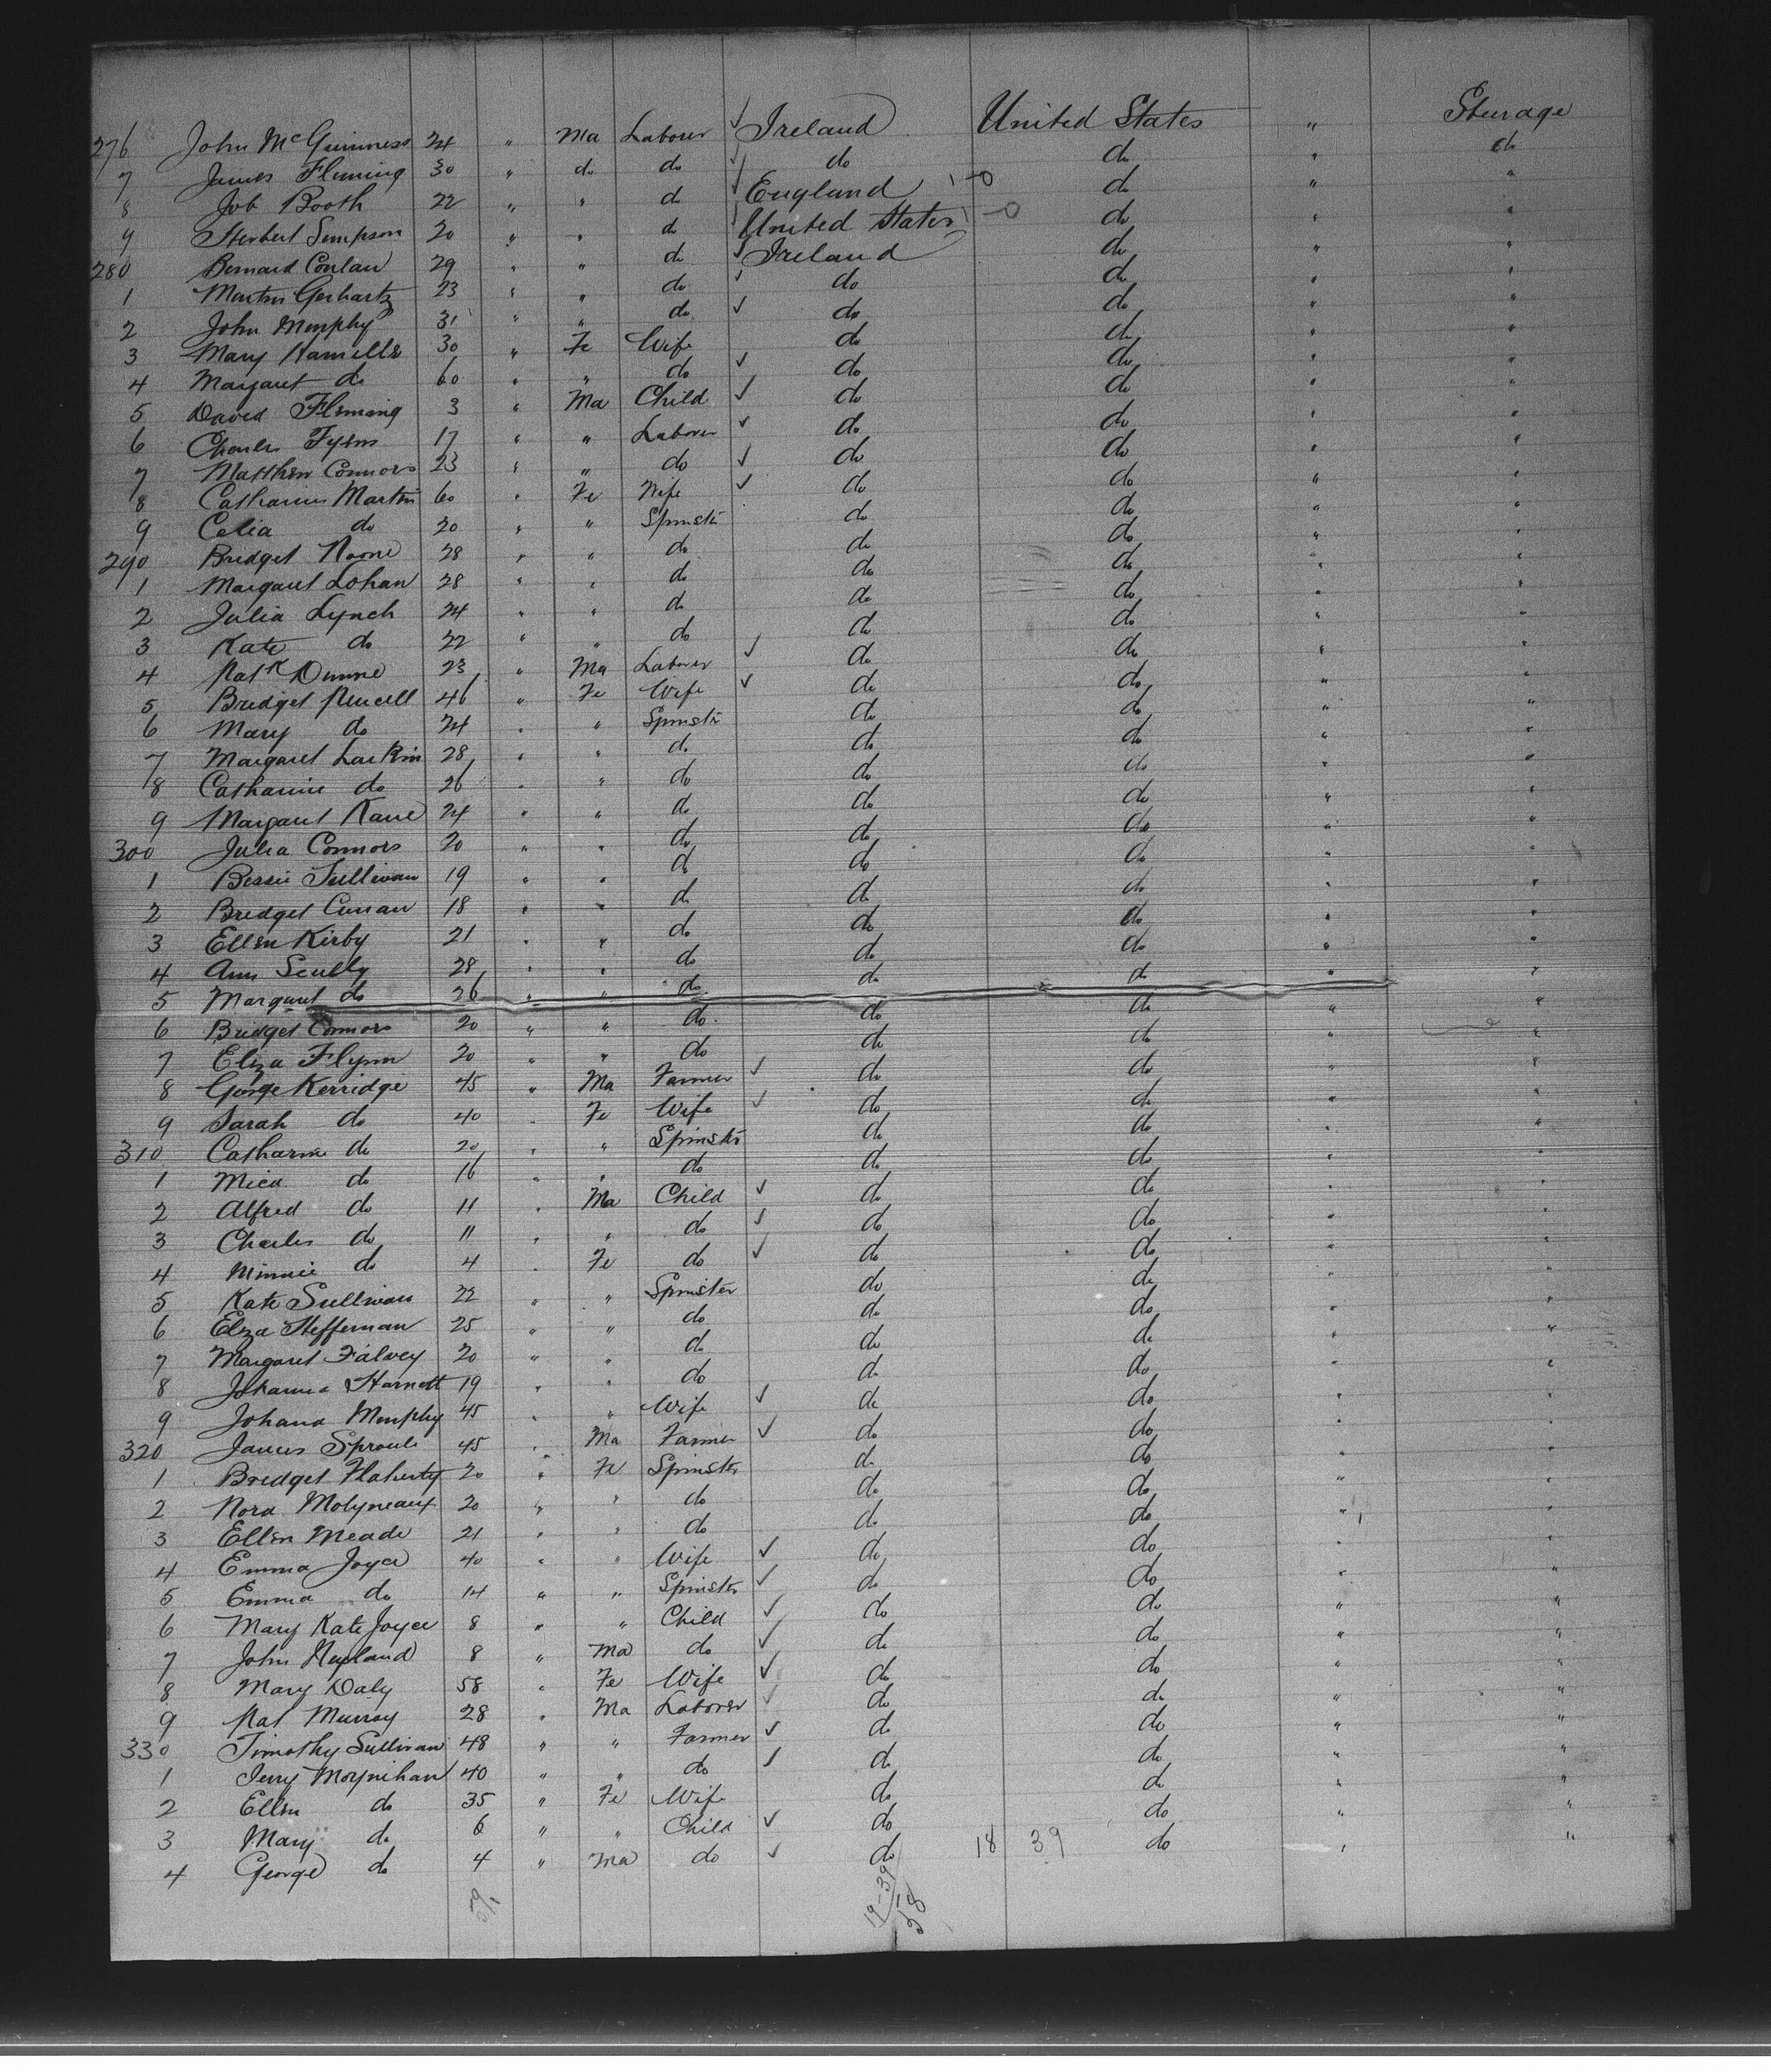 276 John McGuinness 24 " Ma Labourer Ireland United States " Steerage
7 James Fleming 30 " do do do do " do
8 Job Booth 22 " " do England do " "
9 Herbert Simpson 20 " " do United States do " "
280 Bernard Conlan 29 " " do Ireland do " "
1 Martin Gerhartz 23 " " do do do " "
2 John Murphy 31 " " do do do " "
3 Mary 30 " Fe Wife do do " "
4 Margaret do 60 " " do do do " "
5 David Fleming 3 " Ma Child do do " "
6 Charles 17 " " Laborer do do " "
7 Matthew Connors 23 " " do do do " "
8 Catharine Martin 60 " Fe Wife do do " "
9 Celia do 20 " " Spinstr do do " "
290 Bridget Noone 28 " " do do do " "
1 Margaret Lohan 28 " " do do do " "
2 Julia Lynch 24 " " do do do " "
3 Kate do 22 " " do do do " "
4 Patk Dunne 23 " Ma Laborer do do " "
5 Bridget Purcell 46 " Fe Wife do do " "
6 Mary do 24 " " Spinstr do do " "
7 Margaret Larkin 28 " " do do do " "
8 Catharine do 26 " " do do do " "
9 Margaret Kane 24 " " do do do " "
300 Julia Connors 20 " " do do do " "
1 Bessie Sullivan 19 " " do do do " "
2 Bridget Curran 18 " " do do do " "
3 Ellen Kirby 21 " " do do do " "
4 Ann Scully 28 " " do do do " "
5 Margaret do 26 " " do do do " "
6 Bridget Connors 20 " " do do do " "
7 Eliza Flynn 20 " " do do do " "
8 George Kerridge 45 " Ma Farmer do do " "
9 Sarah do 40 " Fe Wife do do " "
310 Catharine do 20 " " Spinstr do do " "
1 Mica do 16 " " do do do " "
2 Alfred do 11 " Ma Child do do " "
3 Charles do 11 " " do do do " "
4 Minnie do 4 " Fe do do do " "
5 Kate Sullivan 22 " " Spinster do do " "
6 Eliza Heffernan 25 " " do do do " "
7 Margaret Falvey 20 " " do do do " "
8 Johanna Harnett 19 " " do do do " "
9 Johana Murphy 45 " " Wife do do " "
320 James Sproule 45 " Ma Farmer do do " "
1 Bridget Flaherty 20 " Fe Spinster do do " "
2 Nora Molyneaux 20 " " do do do " "
3 Ellen Meade 21 " " do do do " "
4 Emma Joyce 40 " " Wife do do " "
5 Emma do 14 " " Spinster do do " "
6 Mary Kate Joyce 8 " " Child do do " "
7 John 8 " Ma do do do " "
8 Mary Daly 58 " Fe Wife do do " "
9 Pat Murray 28 " Ma Laborer do do " "
330 Timothy Sullivan 48 " " Farmer do do " "
1 Jerry Moynihan 40 " " do do do " "
2 Ellen do 35 " Fe Wife do do " "
3 Mary do 6 " " Child do do " "
4 George do 4 " Ma do do 18 39 do " "
19-39
58